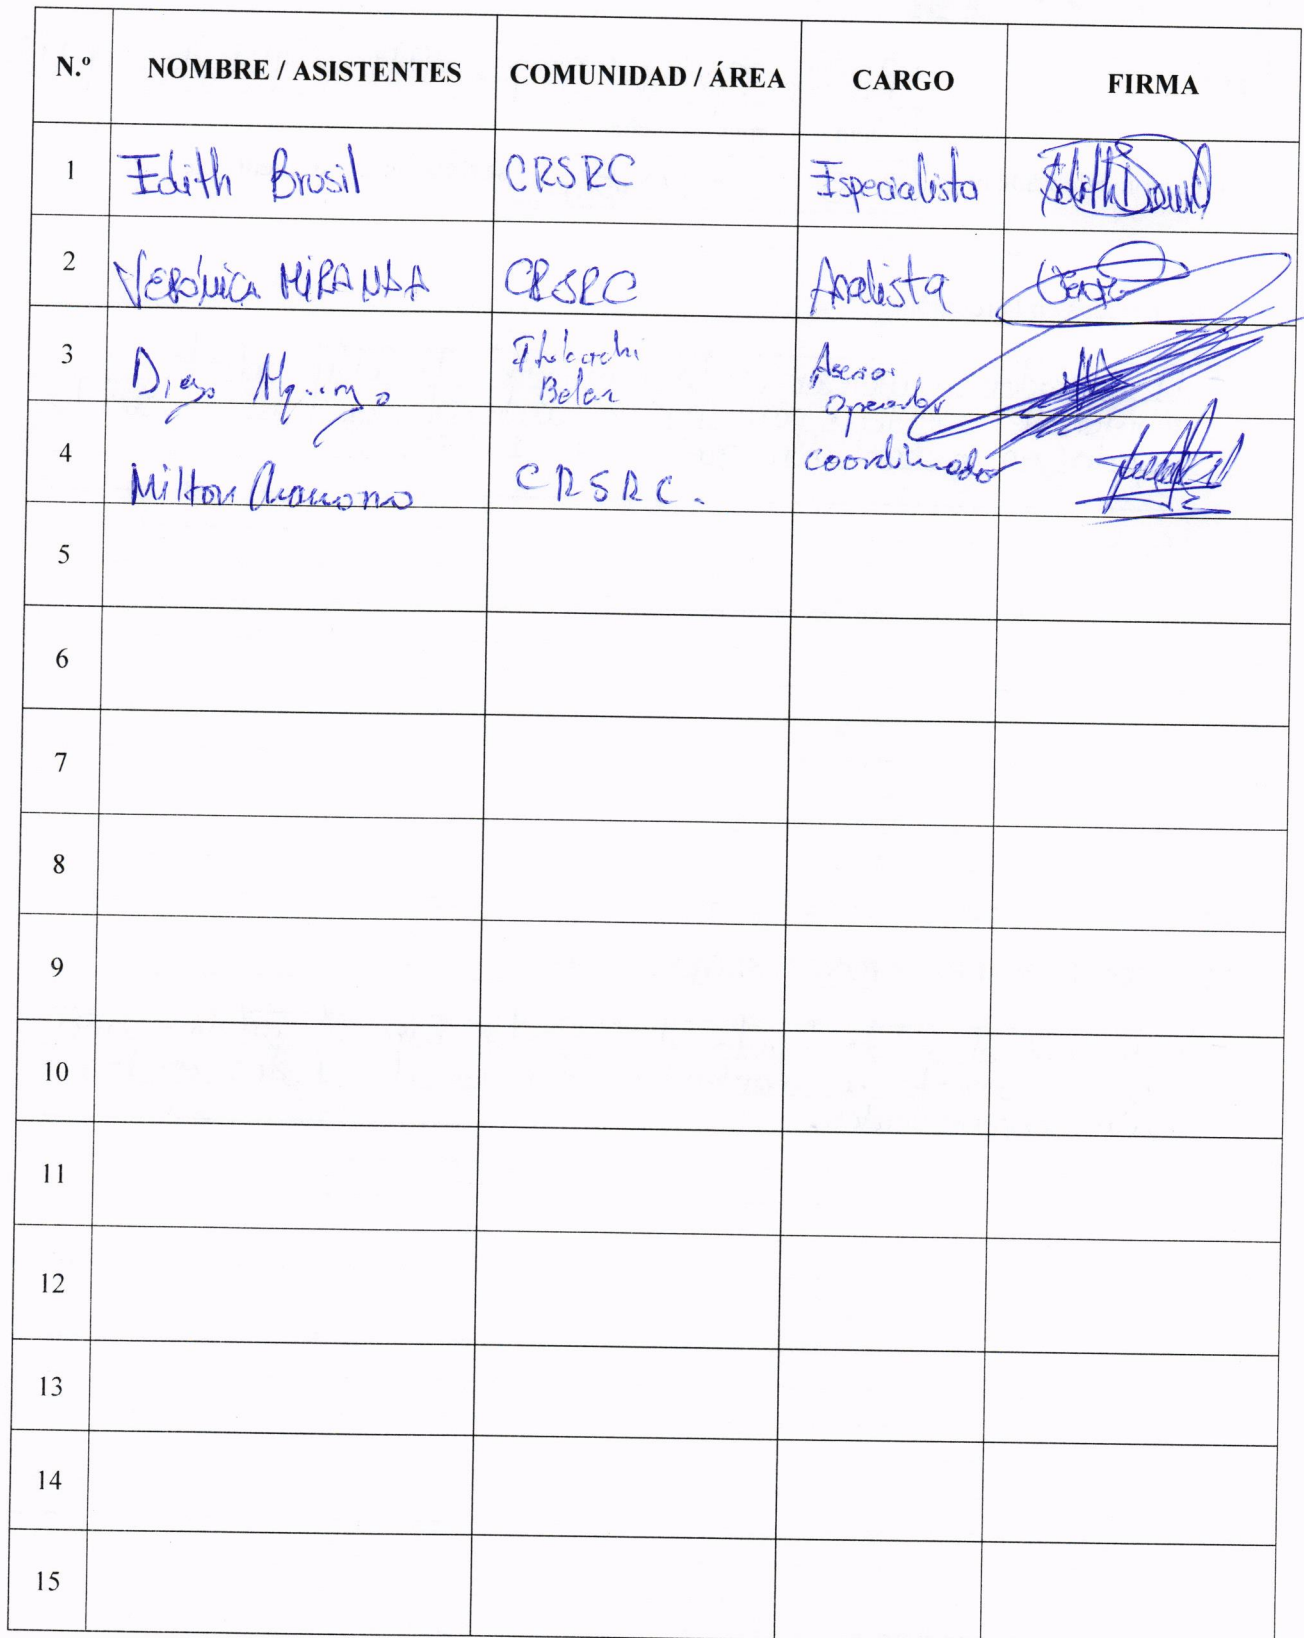 N.º NOMBRE / ASISTENTES COMUNIDAD / ÁREA CARGO FIRMA
1 Edith Brusil CRSRC Especialista
2 VERÓNICA MIRANDA CRSRC Analista
3 Diego
Asesor
Operador
4 Milton CRSRC. coordinador
5
6
7
8
9
10
11
12
13
14
15